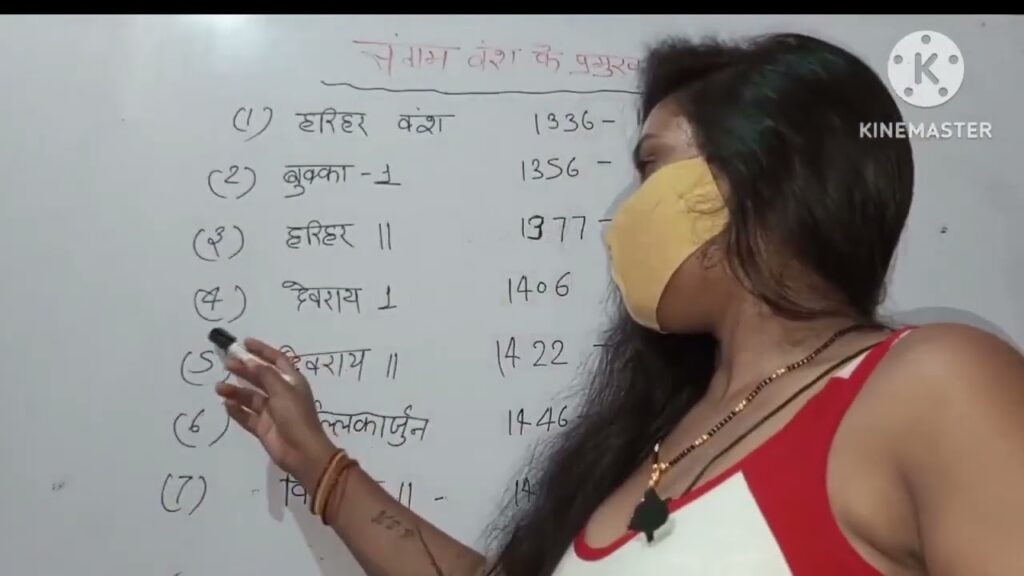 संगम वंश के प्रमुख
(1) हरिहर वंश 1336-
(2) बुक्का -1 1356 -
(3) हरिहर || 1377 -
(4) देवराय 1 1406
(5 देवराय || 1422 -
(6) ल्लिकार्जुन 1446
(7) - वि || - 14
K
KINEMASTER